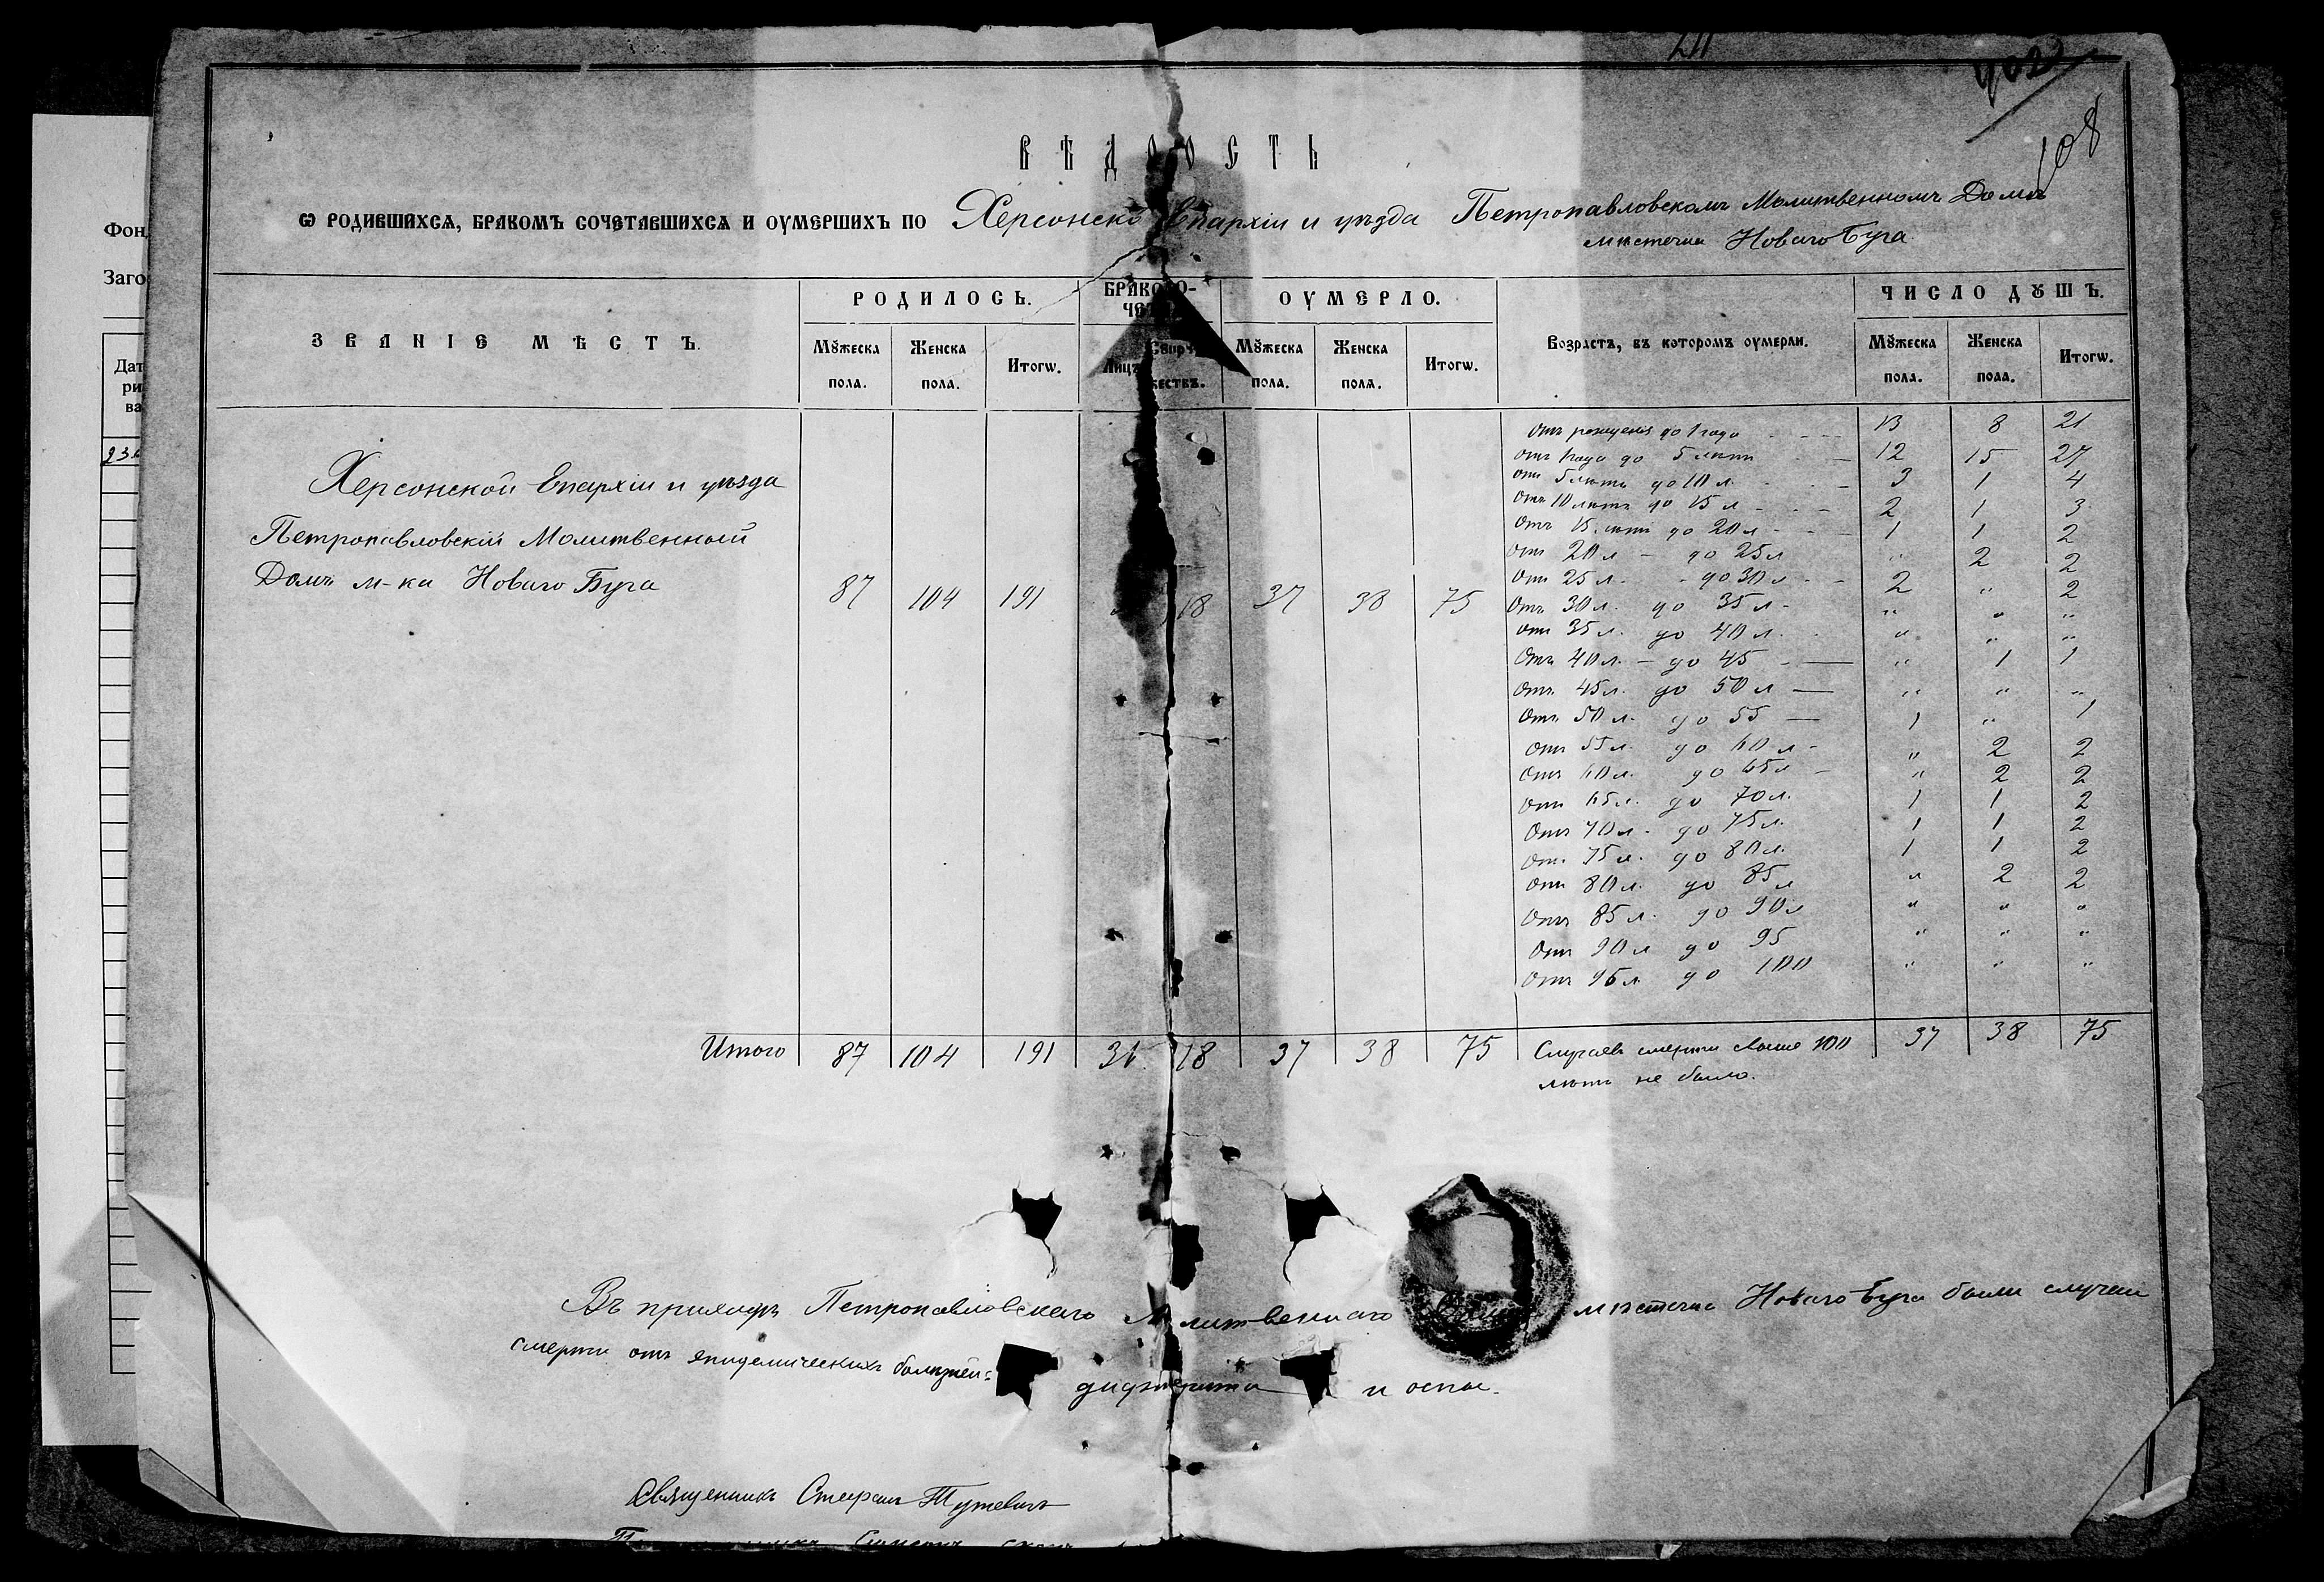 Фон
Заго
Дат
ри
ва
408
ВѢДОМОСТЬ
Ѡ РОДИВШИХСѦ, БРАКОМЪ СОЧЕТАВШИХСѦ И ОУМЕРШИХЪ ПО Херсонско Епархіи и уѣзда Петропавловскомъ Молитвенномъ Домѣ
мѣстечка Новаго Буга
ЗВАНІЕ МѢСТЪ. РОДИЛОСЬ. БРАКОСО- ОУМЕРЛО. Возрастъ, въ которомъ оумерли. ЧИСЛО ДꙊШЪ.
ЧЕТ
Мꙋжеска пола. Женска пола. Итогѡ. Лицъ Мꙋжеска пола. Женска пола. Итогѡ. Мꙋжеска пола. Женска пола. Итогѡ.
Отъ рожденія до 1 года 13 8 21
Отъ 1 года до 5 лѣтъ 12 15 27
Отъ 5 лѣтъ до 10 л. 3 1 4
Отъ 10 лѣтъ до 15 л 2 1 3
Отъ 15 лѣтъ до 20 л 1 1 2
Отъ 20 л - до 25 л " 2 2
Отъ 25 л. - до 30 л 2 " 2
Отъ 30 л. до 35 л. " " "
Отъ 35 л. до 40 л. " " "
Отъ 40 л. - до 45 " 1 1
Отъ 45 л. до 50 л " " "
Отъ 50 л. до 55 1 " 1
Отъ 55 л. до 60 л " 2 2
Отъ 60 л. до 65 л " 2 2
Отъ 65 л. до 70 л. 1 1 2
Отъ 70 л. до 75 л. 1 1 2
От. 75 л. до 80 л. 1 1 2
Отъ 80 л. до 85 л " 2 2
Отъ 85 л. до 90 л " " "
Отъ 90 л до 95 " " "
Отъ 95 л до 100 " " "
Херсонской Епархіи и уѣзда
Петропавловскій Молитвенный
Домъ м-ка Новаго Буга 87 104 191 18 37 38 75
Итого 87 104 191 36 18 37 38 75 Случаевъ смерти свыше 100 37 38 75
лѣтъ не было.
Въ приходѣ Петропавловскаго М литвеннаго мѣстечка Новаго Буга были случаи
смерти отъ эпидемическихъ болѣзней: дифтерита и оспы.
Священникъ Стефанъ